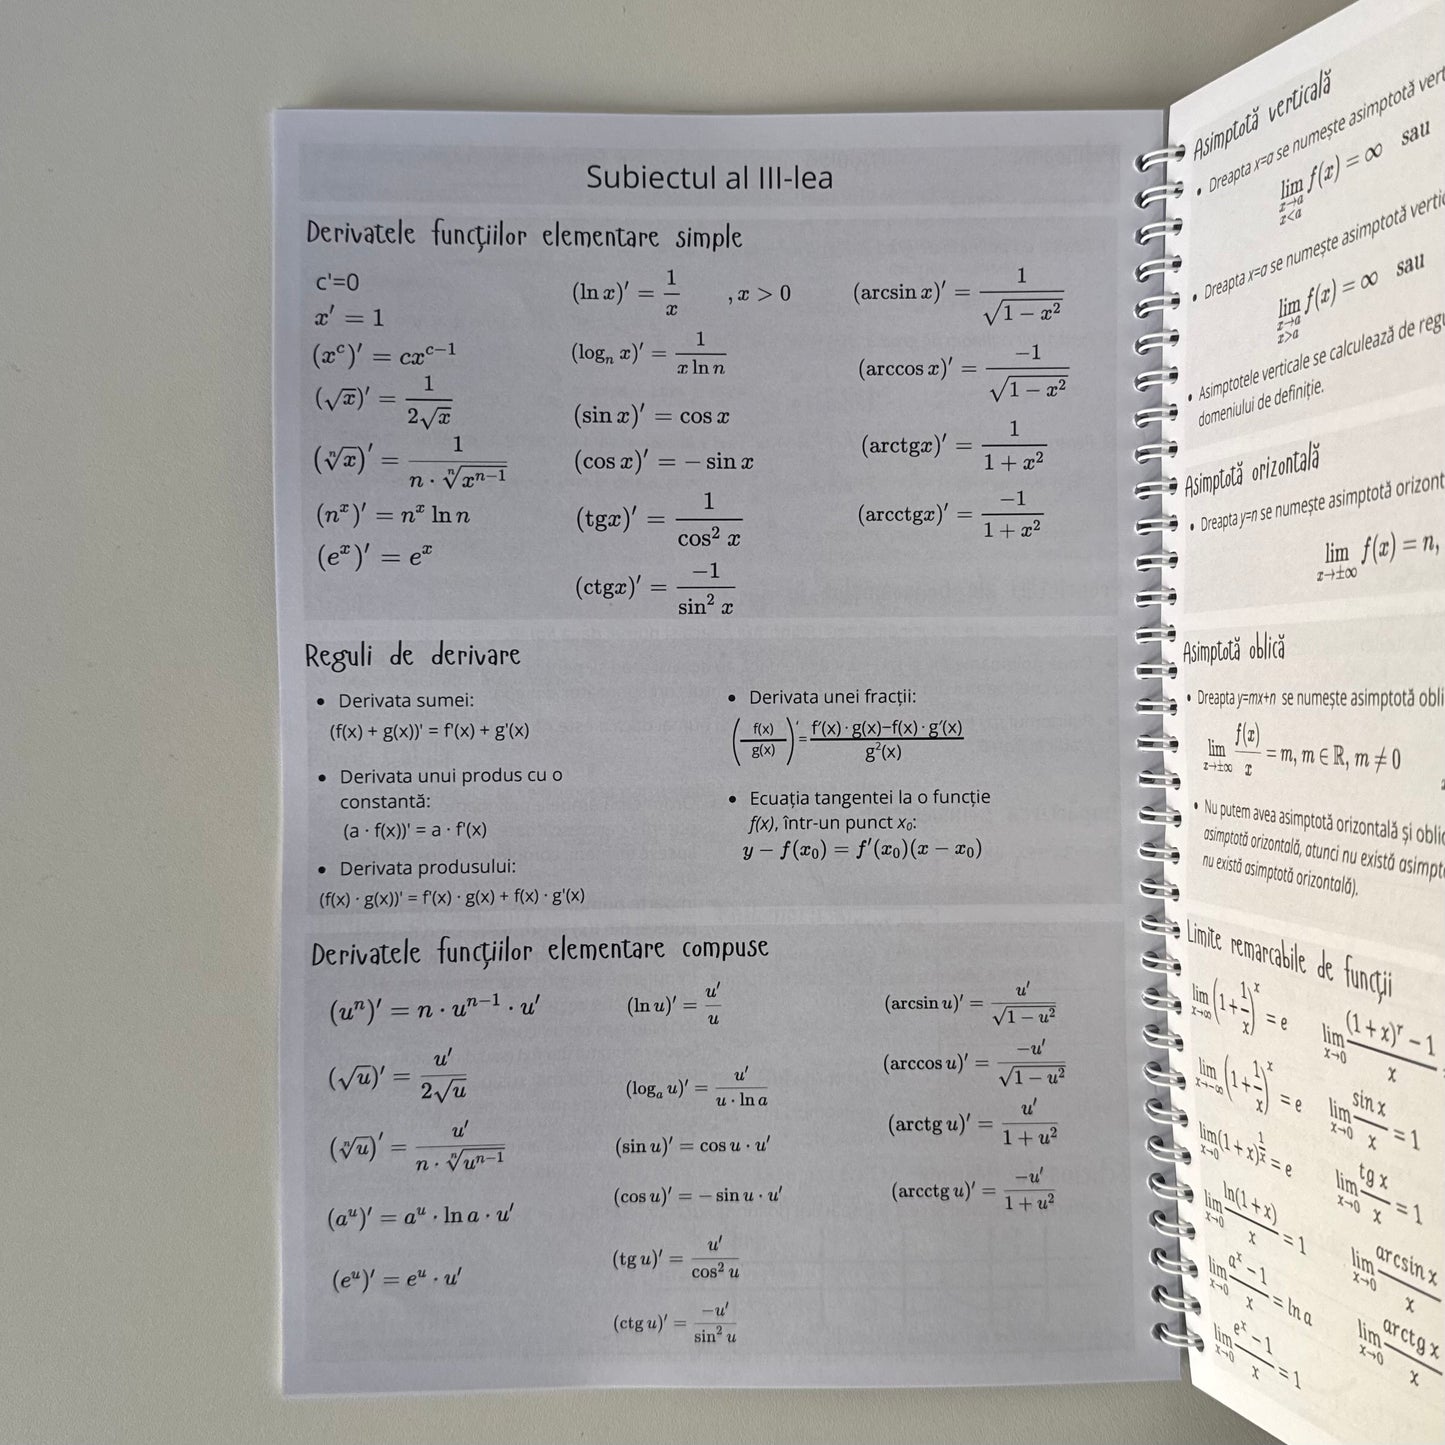 Subiectul al III-lea
Derivatele funcțiilor elementare simple
c'=0
x′ = 1
(x^c)′ = cx^{c−1}
(√x)′ = 1/(2√x)
(ⁿ√x)′ = 1/(n · ⁿ√(x^{n−1}))
(n^x)′ = n^x ln n
(e^x)′ = e^x
(ln x)′ = 1/x , x > 0
(log_n x)′ = 1/(x ln n)
(sin x)′ = cos x
(cos x)′ = − sin x
(tgx)′ = 1/(cos² x)
(ctgx)′ = −1/(sin² x)
(arcsin x)′ = 1/√(1 − x²)
(arccos x)′ = −1/√(1 − x²)
(arctgx)′ = 1/(1 + x²)
(arcctgx)′ = −1/(1 + x²)
Reguli de derivare
• Derivata sumei:
(f(x) + g(x))' = f'(x) + g'(x)
• Derivata unui produs cu o
constantă:
(a · f(x))' = a · f'(x)
• Derivata produsului:
(f(x) · g(x))' = f'(x) · g(x) + f(x) · g'(x)
• Derivata unei fracții:
(f(x)/g(x))′ = (f′(x) · g(x)−f(x) · g′(x))/(g²(x))
• Ecuația tangentei la o funcție
f(x), într-un punct x₀:
y − f(x₀) = f′(x₀)(x − x₀)
Derivatele funcțiilor elementare compuse
(u^n)′ = n · u^{n−1} · u′
(√u)′ = u′/(2√u)
(ⁿ√u)′ = u′/(n · ⁿ√(u^{n−1}))
(a^u)′ = a^u · ln a · u′
(e^u)′ = e^u · u′
(ln u)′ = u′/u
(log_a u)′ = u′/(u · ln a)
(sin u)′ = cos u · u′
(cos u)′ = − sin u · u′
(tg u)′ = u′/(cos² u)
(ctg u)′ = −u′/(sin² u)
(arcsin u)′ = u′/√(1 − u²)
(arccos u)′ = −u′/√(1 − u²)
(arctg u)′ = u′/(1 + u²)
(arcctg u)′ = −u′/(1 + u²)
Asimptotă verticală
• Dreapta x=a se numește asimptotă
lim x→a x<a f(x) = ∞ sau
• Dreapta x=a se numește asimptotă
lim x→a x>a f(x) = ∞ sau
• Asimptotele verticale se calculează de
domeniului de definiție.
Asimptotă orizontală
• Dreapta y=n se numește asimptotă
lim x→±∞ f(x) = n,
Asimptotă oblică
• Dreapta y=mx+n se numește asimptotă
lim x→±∞ f(x)/x = m, m ∈ ℝ, m ≠ 0
• Nu putem avea asimptotă orizontală și
asimptotă orizontală, atunci nu există
nu există asimptotă orizontală).
Limite remarcabile de funcții
lim x→∞ (1+1/x)^x = e
lim x→−∞ (1+1/x)^x = e
lim x→0 (1+x)^{1/x} = e
lim x→0 ln(1+x)/x = 1
lim x→0 (a^x −1)/x = ln a
lim x→0 (e^x −1)/x = 1
lim x→0 ((1 + x)^r − 1)/x
lim x→0 sin x/x = 1
lim x→0 tg x/x = 1
lim x→0 arcsin x/x
lim x→0 arctg x/x